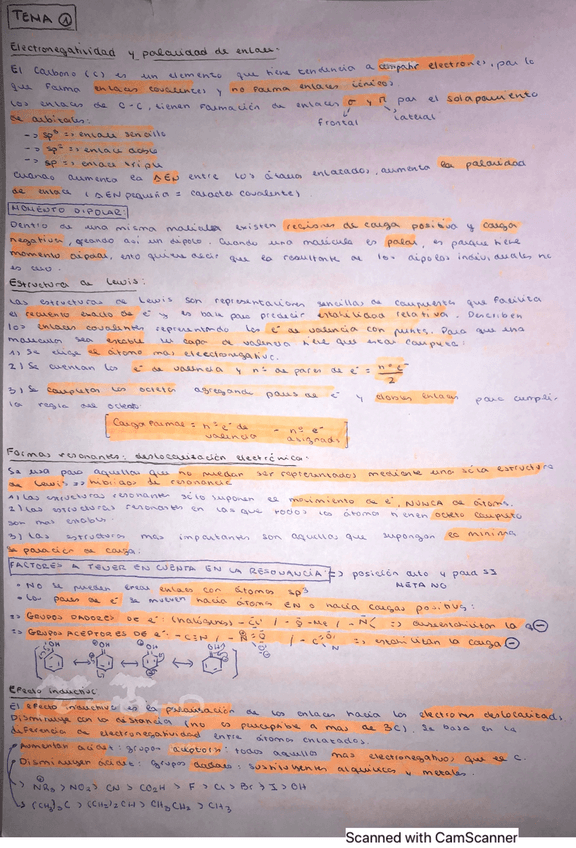 TEMA 1
Electronegatividad y polaridad de enlace.
El Carbono (C) es un elemento que tiene tendencia a compartir electrones, por lo
que forma enlaces covalentes y no forma enlaces iónicos.
Los enlaces de C-C, tienen formación de enlaces σ y π por el solapamiento
de orbitales: frontal lateral
-> sp³ => enlace sencillo
-> sp² => enlace doble
-> sp => enlace triple
Cuando aumenta la ΔEN entre los átomos enlazados, aumenta la polaridad
de enlace (ΔEN pequeña = carácter covalente).
MOMENTO DIPOLAR:
Dentro de una misma molécula existen regiones de carga positiva y carga
negativa, creando así un dipolo. Cuando una molécula es polar, es porque tiene
momento dipolar, esto quiere decir que la resultante de los dipolos individuales no
es cero.
Estructura de Lewis:
Las estructuras de Lewis son representaciones sencillas de compuestos que facilita
el recuento exacto de e⁻ y es base para predecir estabilidad relativa. Describen
los enlaces covalentes representando los e⁻ de valencia con puntos. Para que una
molécula sea estable su capa de valencia tiene que estar completa:
1) Se elige el átomo más electronegativo.
2) Se cuentan los e⁻ de valencia y nº de pares de e⁻ = nº e⁻ / 2
3) Se completan los octetos agregando pares de e⁻ y dobles enlaces para cumplir
la regla del octeto.
Carga Formal = nº e⁻ de valencia - nº e⁻ asignados
Formas resonantes: deslocalización electrónica:
Se usa para aquellas que no puedan ser representados mediante una sola estructura
de Lewis => híbridos de resonancia
1) Las estructuras resonantes sólo suponen el movimiento de e⁻, NUNCA de átomos.
2) Las estructuras resonantes en las que todos los átomos tienen octeto completo
son más estables.
3) Las estructuras más importantes son aquellas que supongan la mínima
separación de carga.
FACTORES A TENER EN CUENTA EN LA RESONANCIA: => posición orto y para SI
META NO
• No se pueden crear enlaces con átomos sp³
• Los pares de e⁻ se mueven hacia átomos EN o hacia cargas positivas:
=> GRUPOS DADORES DE e⁻: (halógenos)
=> GRUPOS ACEPTORES DE e⁻: -C≡N => estabilizan la carga ⊖
Efecto inductivo:
El efecto inductivo es la polarización de los enlaces hacia los electrones deslocalizados.
Disminuye con la distancia (no es perceptible a más de 3C). Se basa en la
diferencia de electronegatividad entre átomos enlazados.
Aumentan acidez: grupos aceptores: todos aquellos más electronegativos que el C.
Disminuyen acidez: grupos dadores: sustituyentes alquílicos y metales.
> NR₃ > NO₂ > CN > CO₂H > F > Cl > Br > I > OH
> (CH₃)₃C > (CH₃)₂CH > CH₃CH₂ > CH₃
Scanned with CamScanner